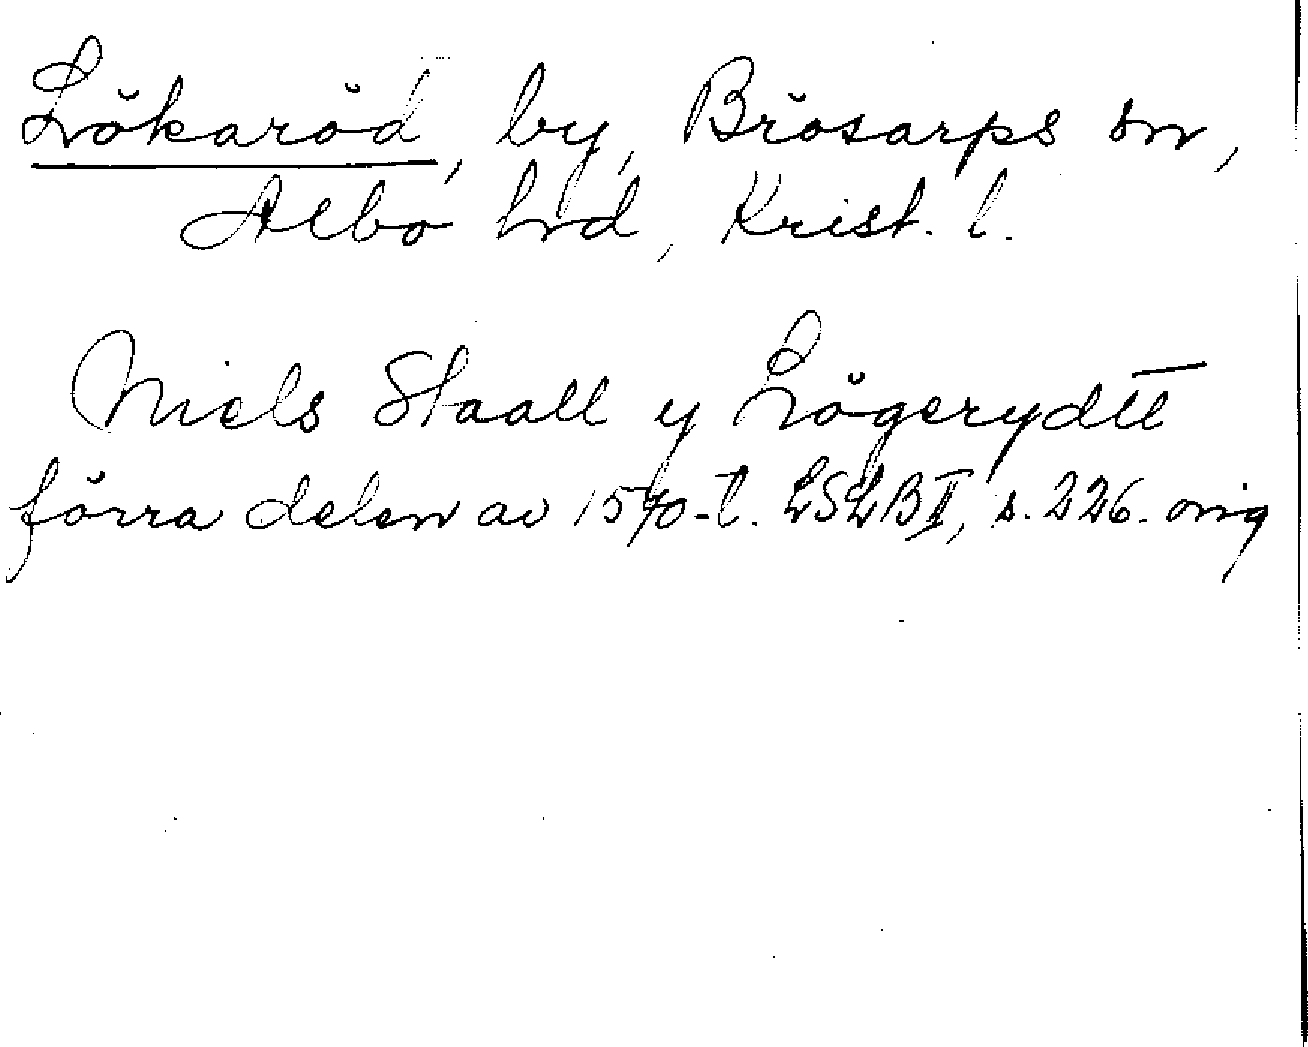 Lökaröd, by, Brösarps sn,
Albo hrd, Krist. l.
Niels Staall y Løgerydtt
förra delen av 1570-t. LSLB II, s. 226. orig